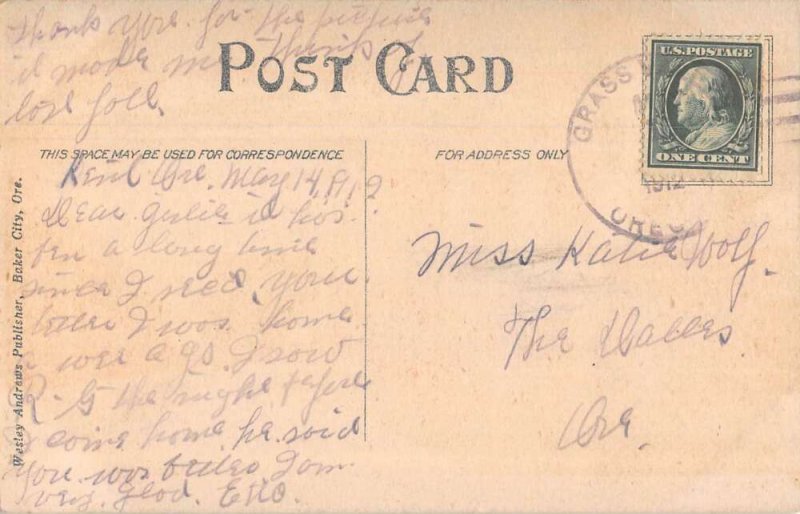 thank you for the picture
it made me think of
last fall
POST CARD
U.S. POSTAGE
ONE CENT
GRASS
1912
OREG
THIS SPACE MAY BE USED FOR CORRESPONDENCE
FOR ADDRESS ONLY
Kent Ore. May 14, 1912
Dear girlie it has
ben a long time
since I rec'd your
letter I was home
a week ago I saw
R. G the night before
I come home he said
you was better I am
very glad.
Miss Katie Wolf.
The Dalles
Ore.
Wesley Andrews Publisher, Baker City, Ore.